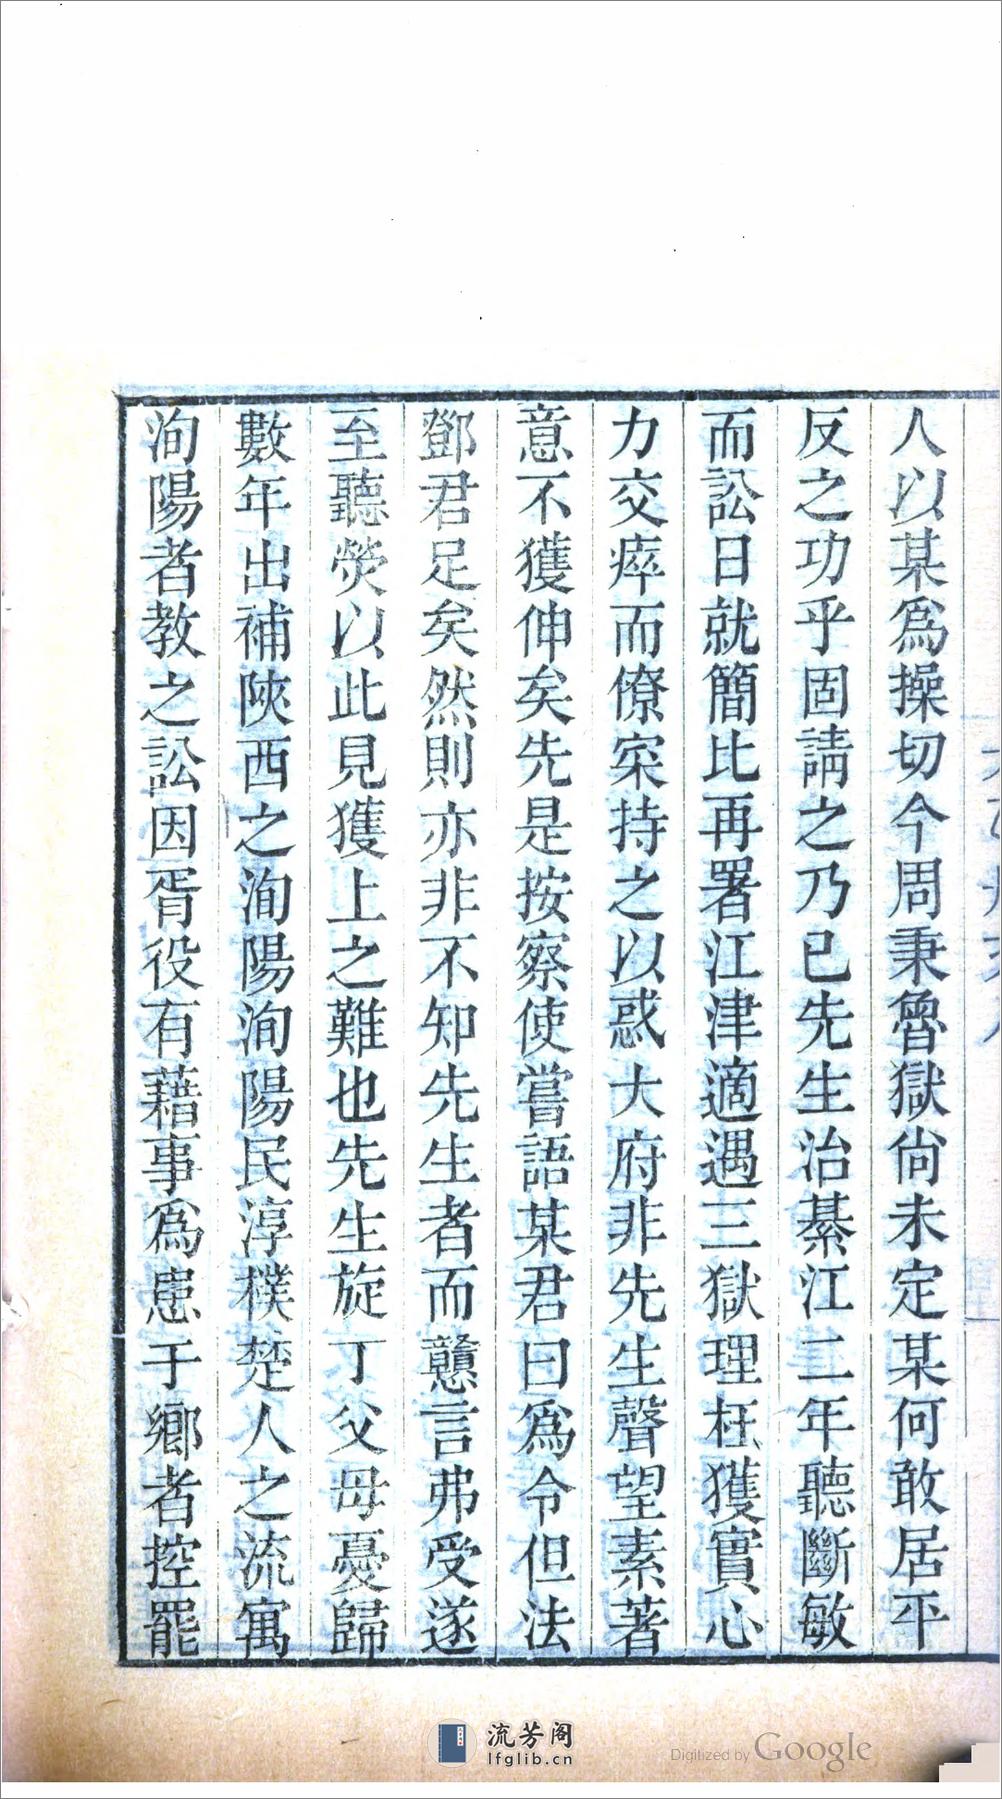 人以某爲操切今周秉魯獄尙未定某何敢居平
反之功乎固請之乃已先生治綦江二年聽斷敏
而訟日就簡比再署江津適遇三獄理枉獲實心
力交瘁而僚寀持之以惑大府非先生聲望素著
意不獲伸矣先是按察使嘗語某君曰爲令但法
鄧君足矣然則亦非不知先生者而戇言弗受遂
至聽熒以此見獲上之難也先生旋丁父母憂歸
數年出補陝西之洵陽洵陽民淳樸楚人之流寓
洵陽者教之訟因胥役有藉事爲患于鄉者控罷
流芳阁
lfglib.cn
Digitized by Google